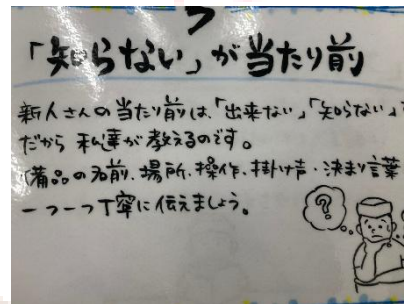 「知らない」が当たり前
新人さんの当たり前は、「出来ない」「知らない」
だから 私達が教えるのです。
(備品の名前、場所、操作、掛け声・決まり言葉
一つ一つ丁寧に伝えましょう。
?